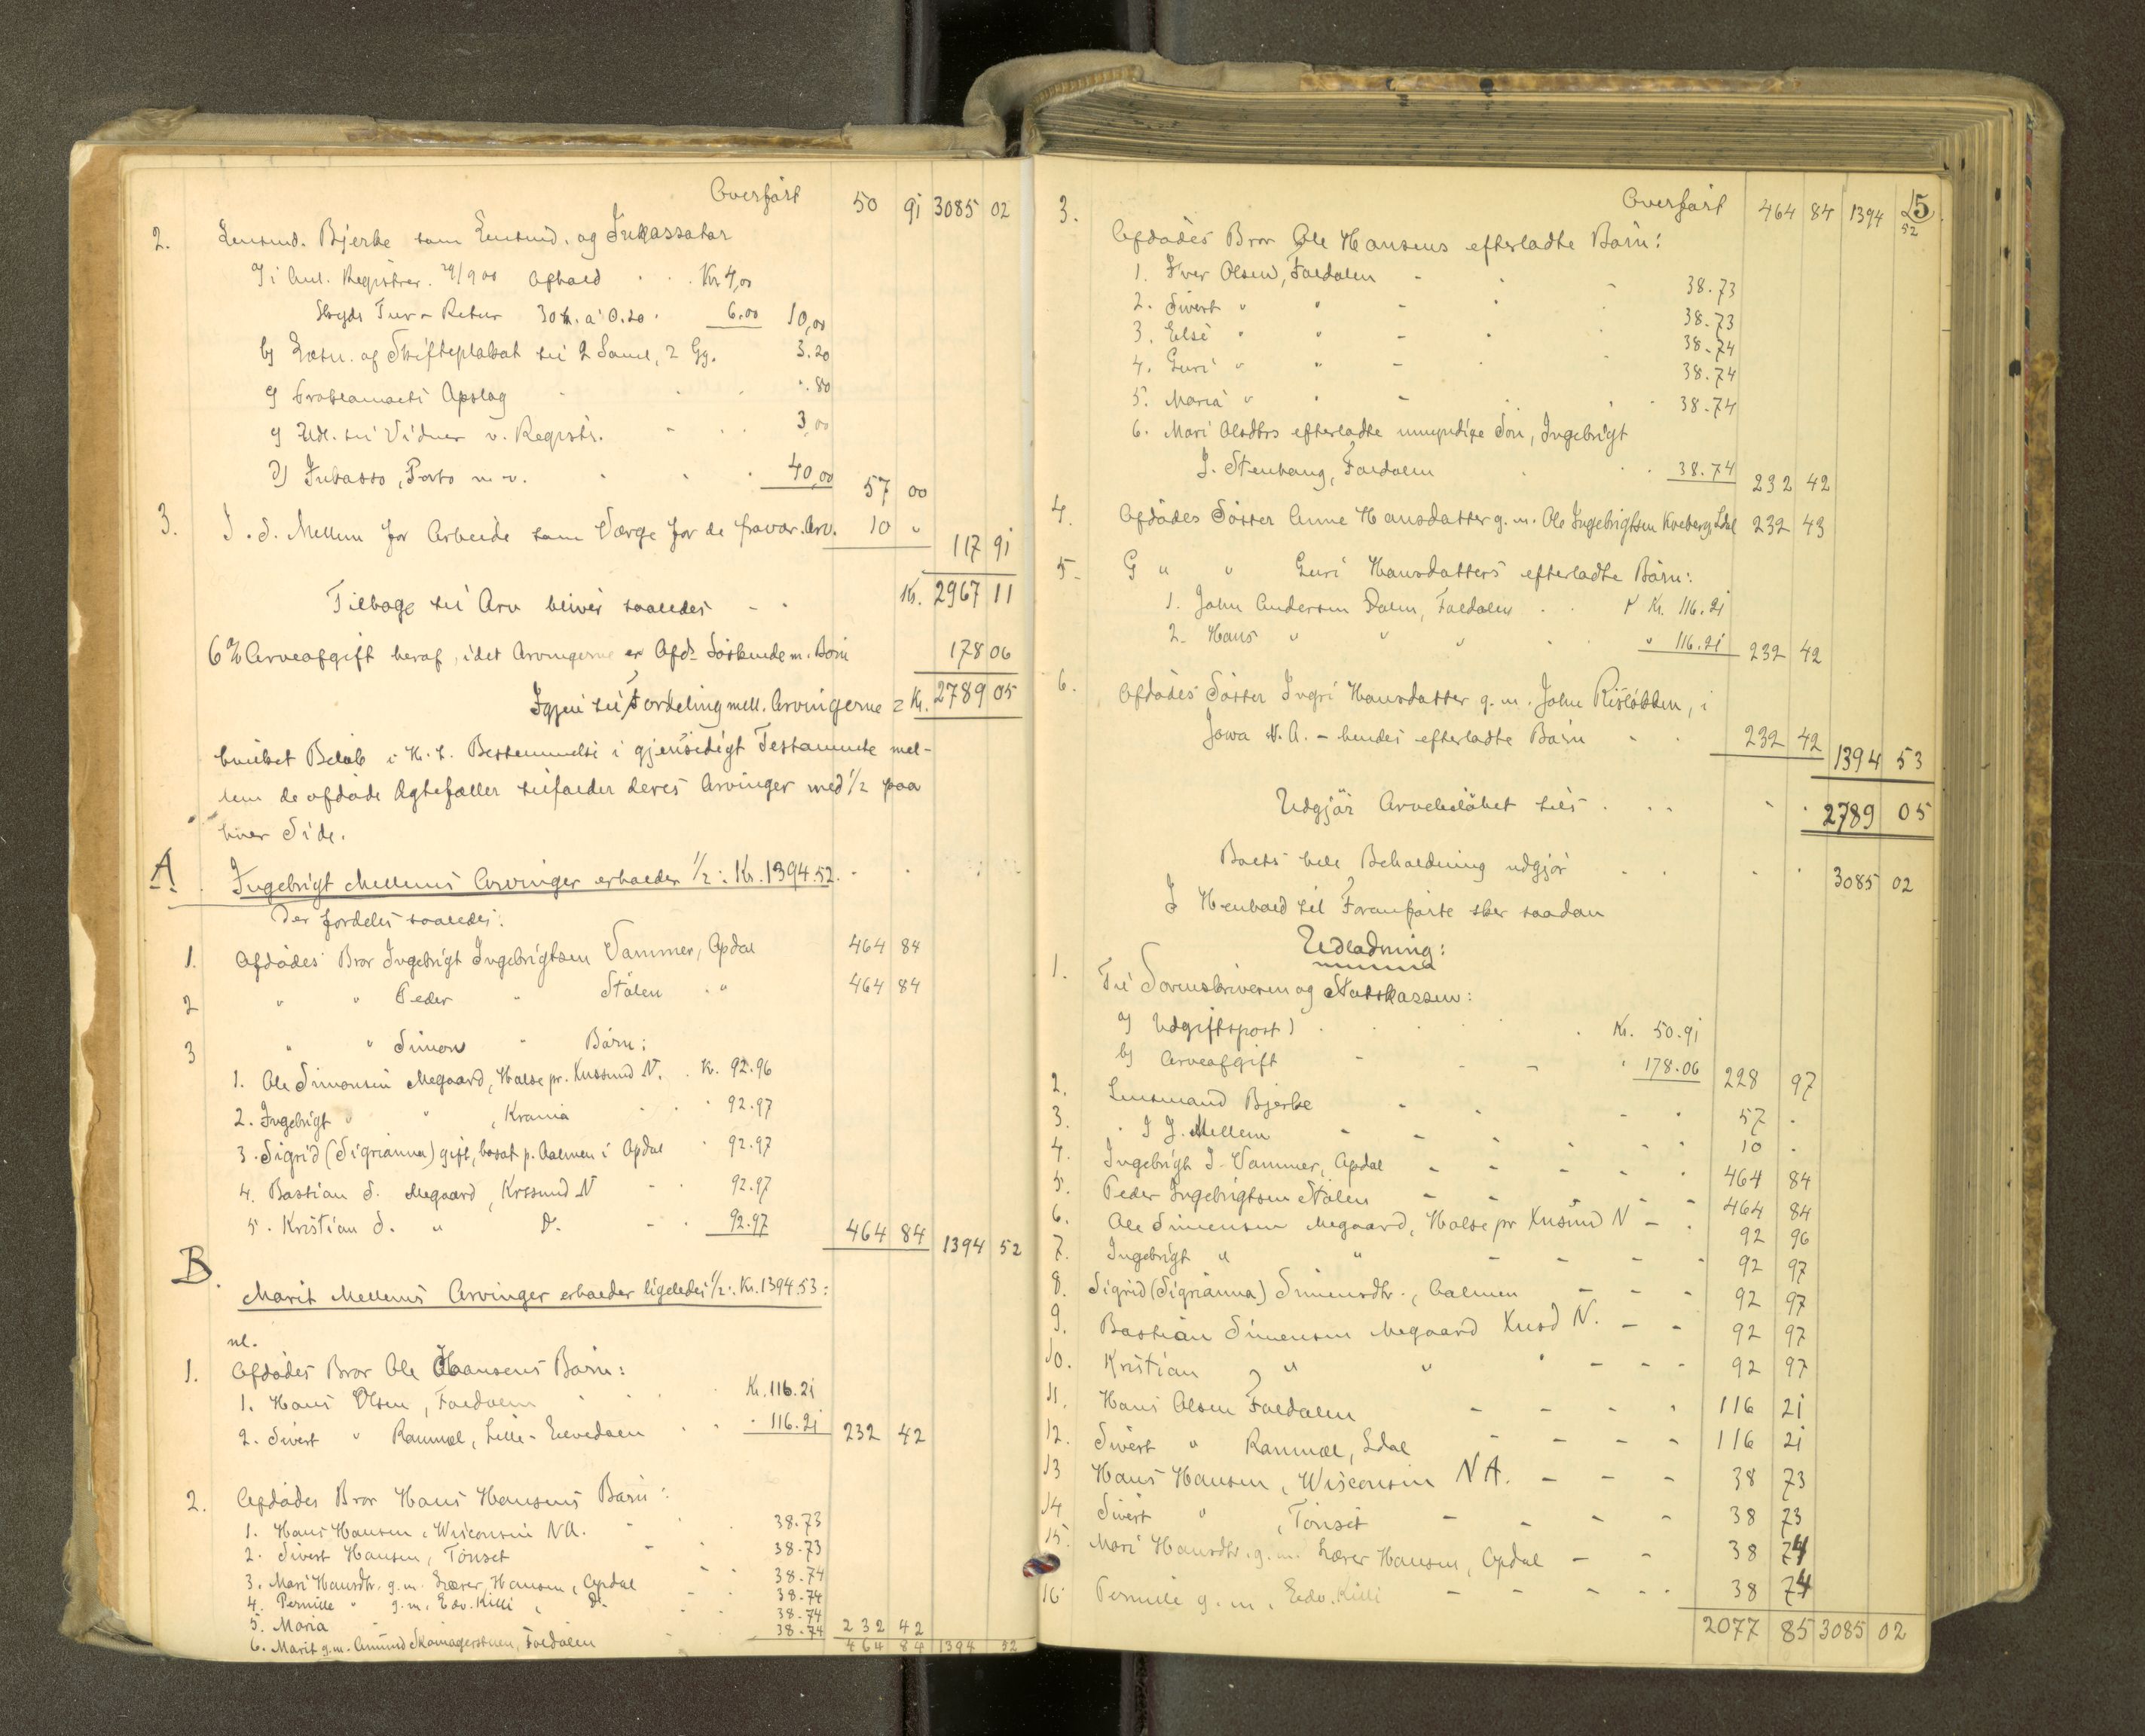 Overført 50 91 3085 02
2. Lensmd. Bjerke som Lensmd. og Inkassator
a) i Anl. Registrer. 29/9 00 Afhold Kr 4,00
Skyds Tur-Retur 30 k. a 0.20 6.00 10,00
b) og Skifteplakat til 2 Saml, 2 Gg. 3.20
c) Proklamaets Opslag .80
d) Udl. til Vidner v. Registr. 3,00
Inkasso, Porto m. v. 40,00 57 00
3. J. S. Mellem for Arbeide som Værge for de fravær. Arv. 10 " 117 91
Tilbage til Arv bliver saaledes Kr. 2967 11
6 % Arveafgift heraf, idet Arvingerne er Afd. Søskende m. Børn 178 06
Igjen til Fordeling mell. Arvingerne = Kr. 2789 05
hvilket Beløb i H. t. Bestemmelse i gjensidigt Testamente mel-
lem de afdøde Ægtefæller tilfalder deres Arvinger med 1/2 paa
hver Side.
A. Ingebrigt Mellems Arvinger erholder 1/2: Kr. 1394.52.
Der fordeles saaledes:
1. Afdødes Bror Ingebrigt Ingebrigtsen Vammer, Opdal 464 84
2 " " Peder " Stølen " 464 84
3 " " Simon " Børn:
1. Ole Simonsen Megaard, Halse pr. Kussund N. Kr. 92.96
2. Ingebrigt " " , Krania 92.97
3. Sigrid (Sigrianna) gift, bosat p. Aalmen i Opdal 92.97
4. Bastian S. Megaard, Krssund N 92.97
5. Kristian S. " D. 92.97 464 84 1394 52
B. Marit Mellems Arvinger erholder ligeledes 1/2: Kr. 1394.53:
nl.
1. Afdødes Bror Ole Hansens Børn:
1. Hans Olsen, Foldalen Kr. 116.21
2. Sivert " Rammel, Lille-Elvedalen 116.21 232 42
2. Afdødes Bror Hans Hansens Børn:
1. Hans Hansen, Wisconsin NA. 38.73
2. Sivert Hansen, Tønset 38.73
3. Mari Hansdtr. g.m. Lærer Hansen, Opdal 38.74
4. Pernille " g.m. Edv. Killi, D. 38.74
5. Maria 38.74
6. Marit g.m. Amund Skomagerstuen, Foldalen 38.74 232 42
464 84 1394 52
15
Overført 464 84 1394 52
3. Afdødes Bror Ole Hansens efterladte Børn:
1. Iver Olsen, Foldalen 38.73
2. Sivert " " 38.73
3. Else " " 38.74
4. Guri " " 38.74
5. Maria " " 38.74
6. Mari Olsdtrs efterladte umyndige Søn, Ingebrigt
J. Stenhaug, Foldalen 38.74 232 42
4. Afdødes Søster Anne Hansdatter g. m. Ole Ingebrigtsen Kveberg, Ldal 232 43
5. " " Guri Hansdatters efterladte Børn:
1. John Andersen Dalen, Foldalen Kr. 116.21
2. Hans " " " " 116.21 232 42
6. Afdødes Søster Ingri Hansdatter g. m. John Risløkken, i
Jowa N. A. - hendes efterladte Børn 232 42 1394 53
Udgjør Arvebeløbet til 2789 05
Boets hele Beholdning udgjør 3085 02
I Henhold til Foranførte sker saadan
Udlodning:
1. Til Sorenskriveren og Statskassen:
a) Udgiftspost 1 Kr. 50.91
b) Arveafgift " 178.06 228 97
2. Lensmand Bjerke 57 .
3. J J. Mellem 10 .
4. Ingebrigt I. Vammer, Opdal 464 84
5. Peder Ingebrigtsen Stølen 464 84
6. Ole Simensen Megaard, Halse pr Krssund N 92 96
7. Ingebrigt " " 92 97
8. Sigrid (Sigrianna) Simensdtr., Aalmen 92 97
9. Bastian Simensen Megaard Krsd N. 92 97
10. Kristian " " 92 97
11. Hans Olsen Foldalen 116 21
12. Sivert " Rammel, Ldal 116 21
13 Hans Hansen, Wisconsin NA. 38 73
14 Sivert " , Tønset 38 73
15. Mari Hansdtr. g. m. Lærer Hansen, Opdal 38 74
16 Pernille g. m. Edv. Killi 38 74
2077 85 3085 02